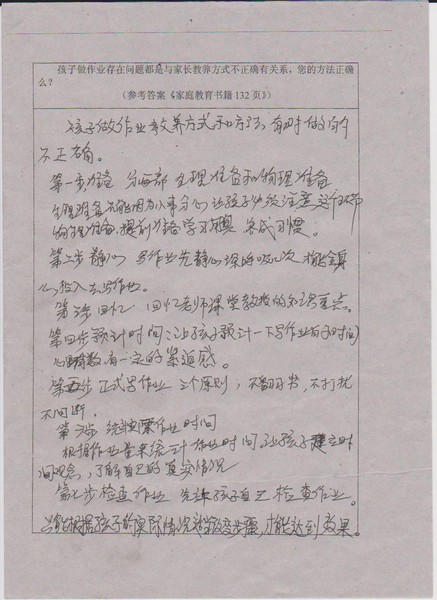 孩子做作业存在问题都是与家长教养方式不正确有关系，您的方法正确
么？
（参考答案《家庭教育书籍 132 页》）
孩子做作业教养方式和方法，有时做的
不正确。
第一步准备 分两部 生理准备和物理准备
生理准备 让孩子必须注意这个环节
物理准备，提前准备学习 养成习惯。
第二步静心 写作业先静心深呼吸几次 才能全身
心投入去写作业。
第三步回忆 回忆老师课堂教授的知识重点。
第四步预计时间：让孩子预计一下写作业的时间
心里有数有一定的紧迫感。
第五步正式写作业 三个原则，不翻书，不打扰
不间断，
第六步 统计实际作业时间
根据作业量来统计作业时间，让孩子建立时
间观念，了解自己的真实情况
第七步检查作业 先让孩子自己检查作业。
根据孩子的实际情况 步骤，才能达到效果。